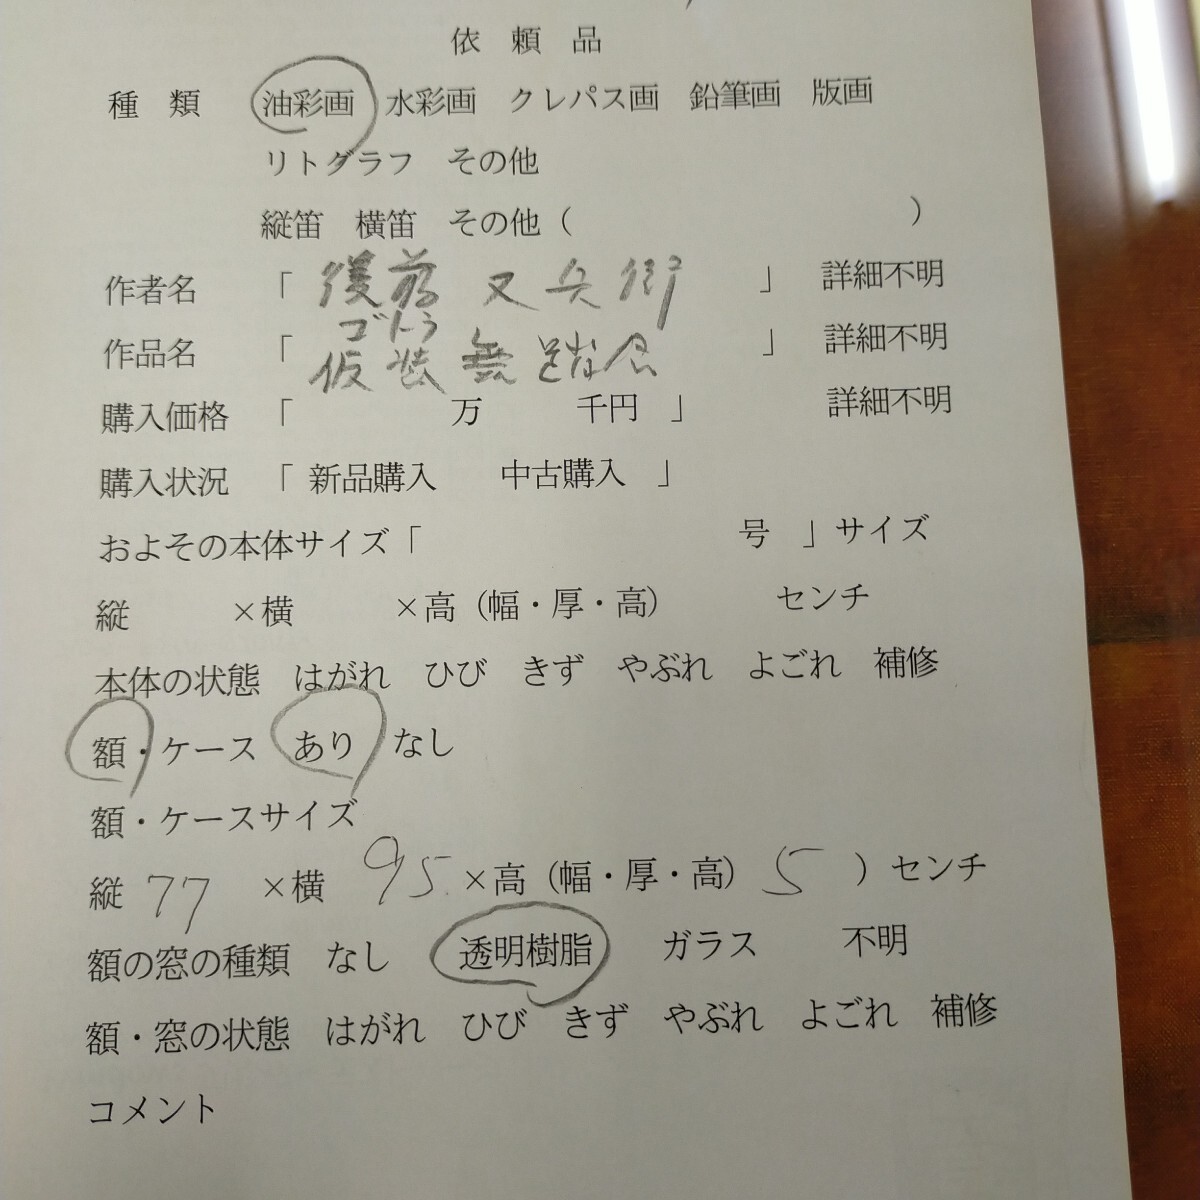 依頼品
種類 油彩画 水彩画 クレパス画 鉛筆画 版画
リトグラフ その他
縦笛 横笛 その他（ ）
作者名 「 後藤又兵衛 」 詳細不明
ゴトウ
作品名 「 仮装無 」 詳細不明
購入価格 「 万 千円 」 詳細不明
購入状況 「 新品購入 中古購入 」
およその本体サイズ「 号 」サイズ
縦 ×横 ×高（幅・厚・高） センチ
本体の状態 はがれ ひび きず やぶれ よごれ 補修
額・ケース あり なし
額・ケースサイズ
縦 77 ×横 95 ×高（幅・厚・高） 5 ）センチ
額の窓の種類 なし 透明樹脂 ガラス 不明
額・窓の状態 はがれ ひび きず やぶれ よごれ 補修
コメント